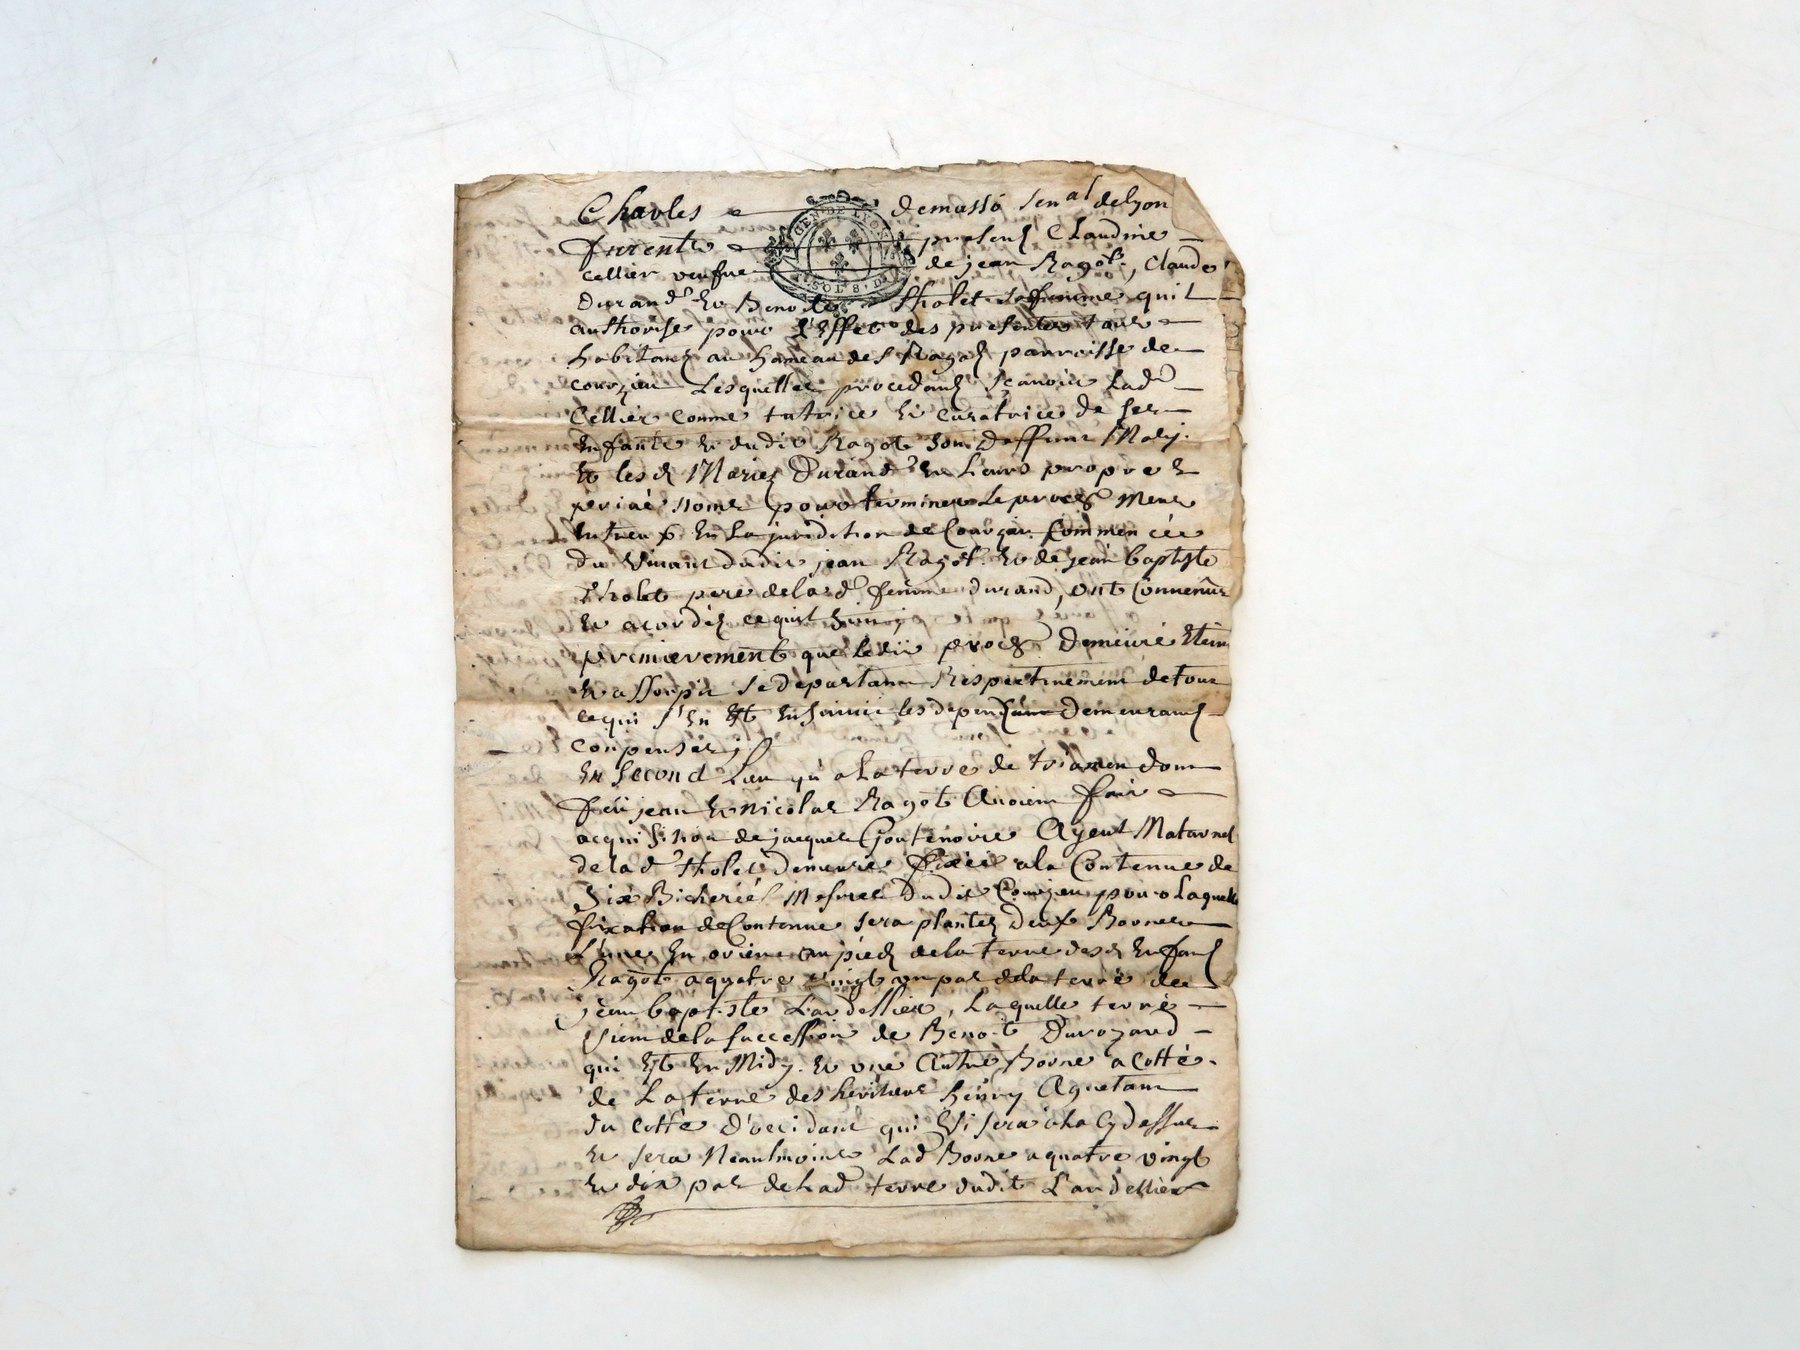 Charles demasso sen.al delyon
GEN DE LYON
SOLS 8 D
furent presens Claudine
cellier veufve de jean Ragot, Claude
Durand et Benoite Tholet sa femme quil
authorise pour l'Effet des presentes tous
habitans au hameau des Ragots parroisse de
courzieu Lesquelles procedans sçavoir Lad.
Cellier comme tutrice et curatrice de ses
enfants et dudit Ragot son deffunt Mary
et lesd Mariez Durand en leurs propres
privé noms pour terminer le proces meus
entreux en la juridition de Courzieu Commencée
du vivant dudit jean Ragot et de jean baptiste
Tholet pere delad. femme durand, ont Convenus
et acordéz ce quit
premierement que ledit proces demeure
et assoupit se departant Respectivement detout
ce qui s'en est ensuivit les depens demeurans
conpenséz
en second Lieu qu'a la terre de dont
feu jean et nicolas Ragot avoient fait
acquisition de jacques Goutenoire Ayeul Maternel
de lad Tholet demeure fixée ala Contenue de
Six Bicherées Mesure dudit Courzieu pour Laquelle
fixation de Contenue sera plantez deux Bornes
L'une en orient au pied dela terre desd enfans
Ragot a quatre vingt un pas dela terre de
jean baptiste Laudellier, Laquelle terre
vient dela succession de Benoit Durozard
qui est en Midy. et une Autre Borne a cotté
de La terre des heritiers henry Aguetant
du cotté d'occidant qui
et sera Neantmoins Lad Borne a quatre vingt
et dix pas de lad terre dudit Laudellier